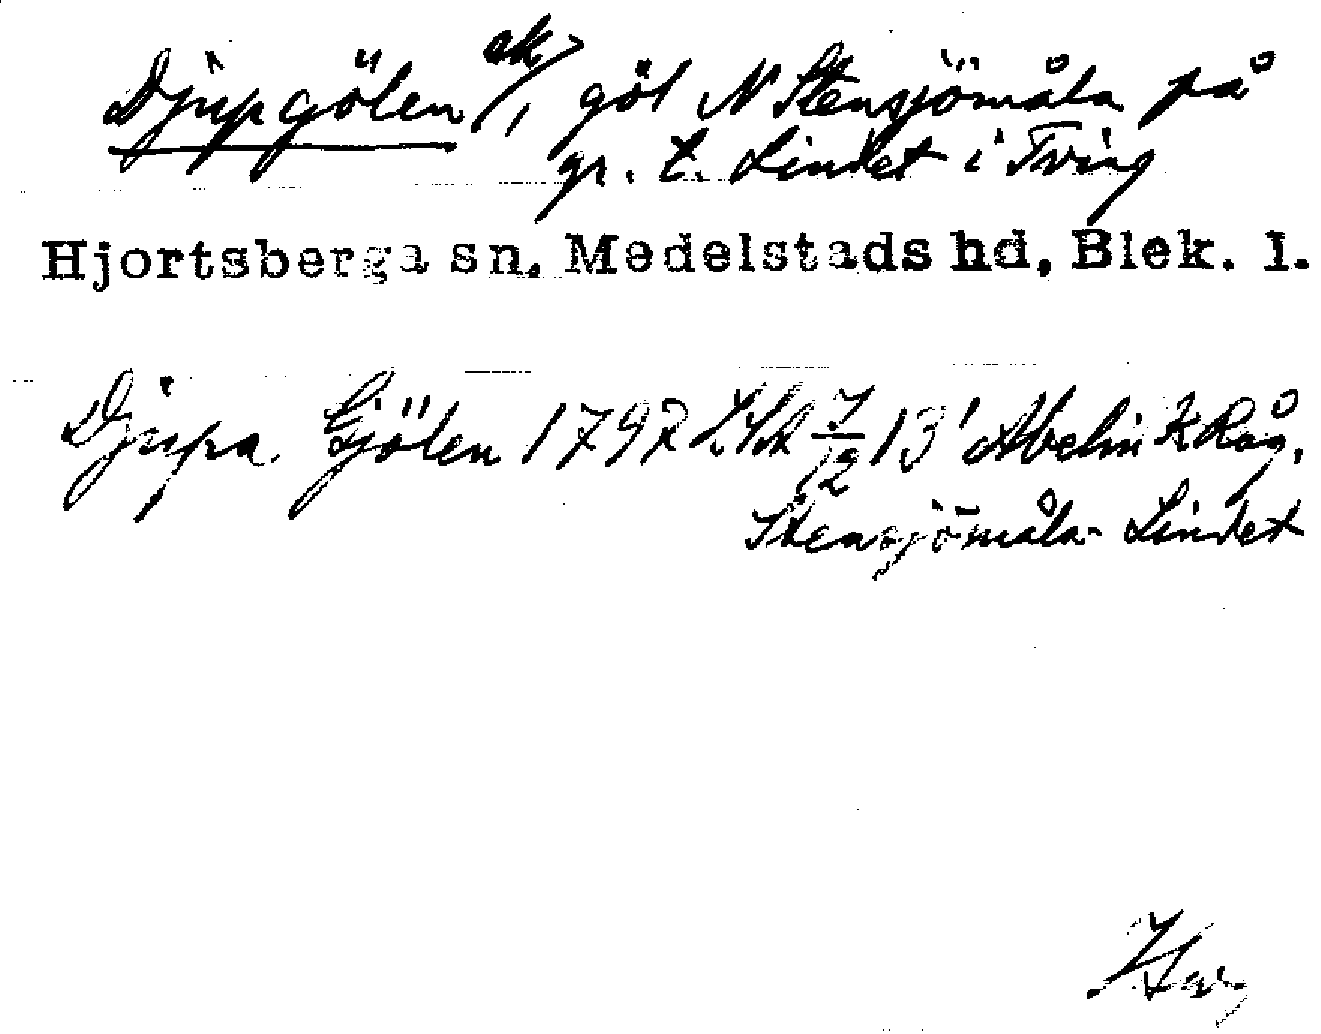 Djupgölen ek, göl N Stensjömåla på
gr. t. Lindet i Tving
Hjortsberga sn, Medelstads hd, Blek. l.
Djupa Gjölen 1792 LSA 7/12 13' Abelin K Råg.
Stensjömåla - Lindet